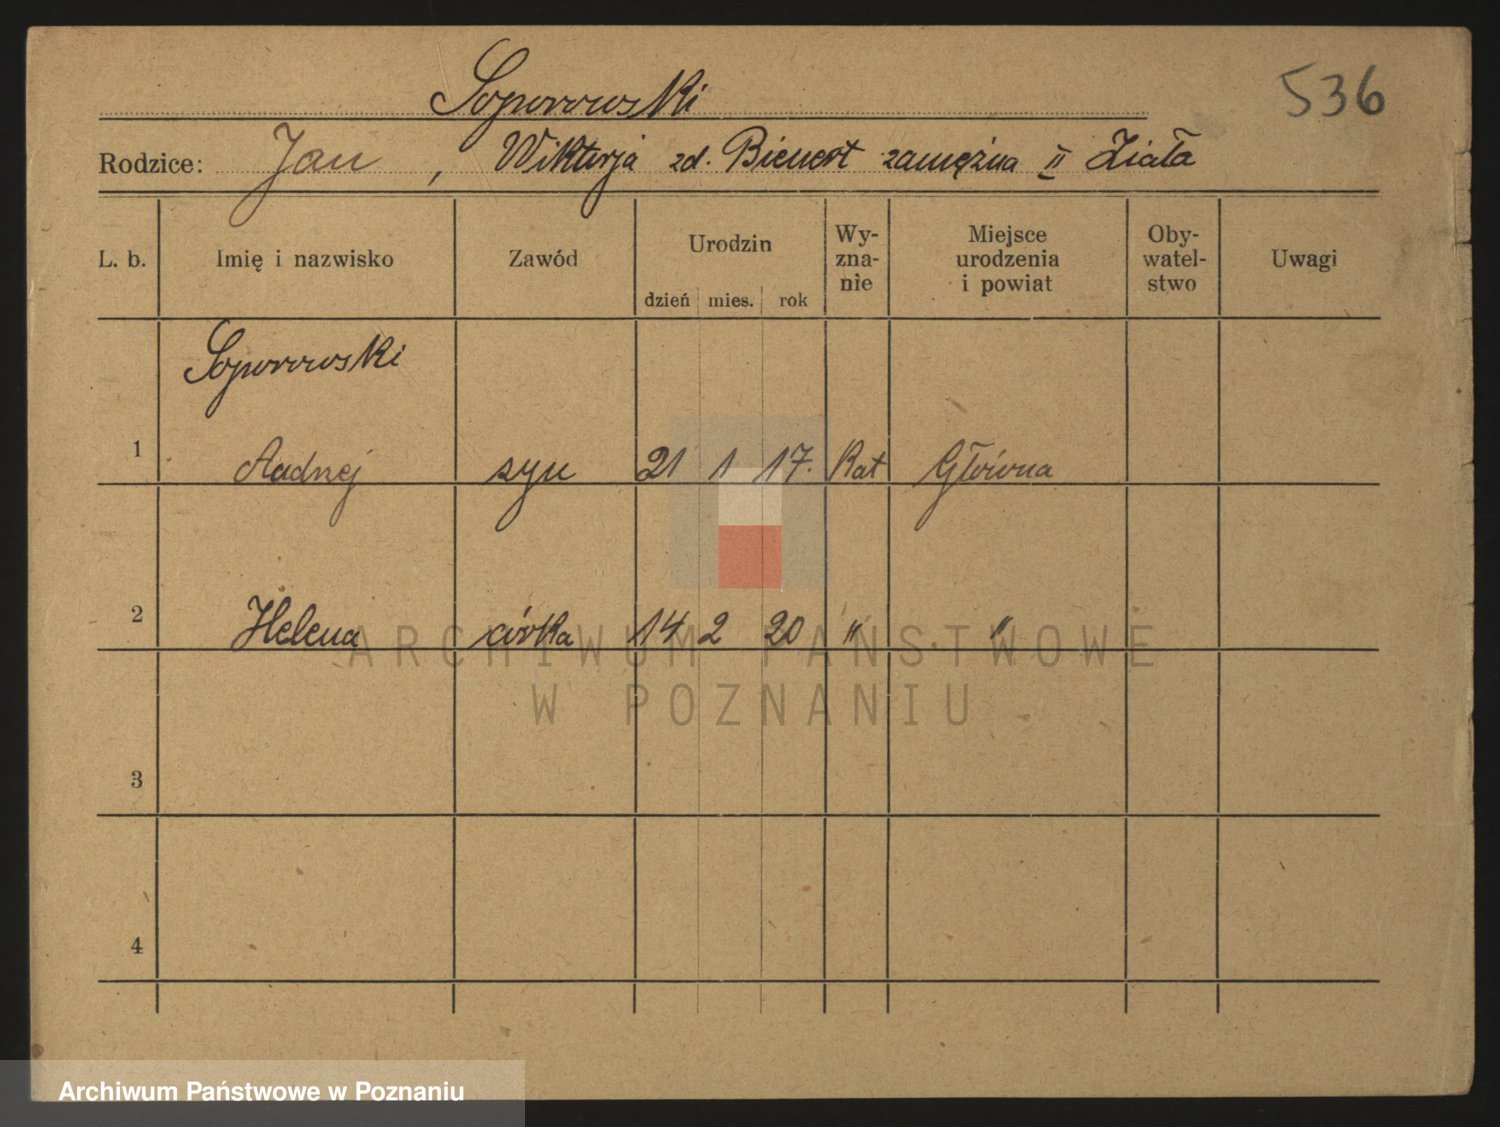 Soporowski
536
Rodzice: Jan, Wiktorja zd. Bienert zamężna II Ziała
L. b. Imię i nazwisko Zawód Urodzin dzień mies. rok Wy-zna-nie Miejsce urodzenia i powiat Oby-watel-stwo Uwagi
Soporowski
1 Andrzej syn 21 1 17. Kat Główna
2 Helena córka 14 2 20 " "
3
4
ARCHIWUM PAŃSTWOWE
W POZNANIU
Archiwum Państwowe w Poznaniu